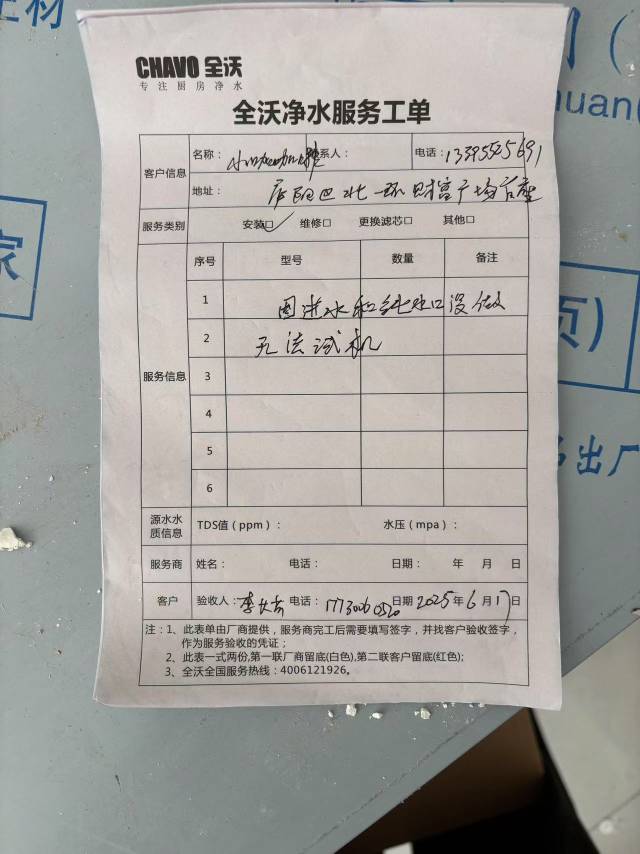 CHAVO 全沃
专注厨房净水
全沃净水服务工单
客户信息
名称： 联系人： 电话：13395525691
地址： 北一环财富广场
服务类别 安装☑ 维修□ 更换滤芯□ 其他□
服务信息
序号 型号 数量 备注
1 因进水和纯水口没做
2 无法试机
3
4
5
6
源水水质信息 TDS值（ppm）： 水压（mpa）：
服务商 姓名： 电话： 日期： 年 月 日
客户 验收人：李 电话：17730060520 日期 2025年6月17日
注：1、此表单由厂商提供，服务商完工后需要填写签字，并找客户验收签字，
作为服务验收的凭证；
2、此表一式两份,第一联厂商留底(白色),第二联客户留底(红色);
3、全沃全国服务热线：4006121926。
材
huan
家
页)
出厂